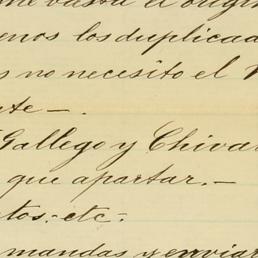 me basta el origin
enos los duplicad
s no necesito el
nte-.
Gallego y Chiva
que apartar.-
tos.-etc-
mandas y enviar